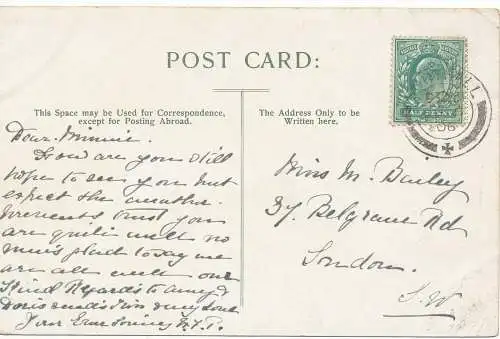 POST CARD:
This Space may be Used for Correspondence,
except for Posting Abroad.
The Address Only to be
Written here.
HALF PENNY
Dear Minnie.
How are you still
hope to see you but
expect the weather
prevents trust you
are quite well no
news glad to say we
are all well our
Kind Regards to Amy &
Doris sends Kiss very Love
Your Ever Loving
Miss M. Bailey
37 Belgrave Rd
London.
S. W